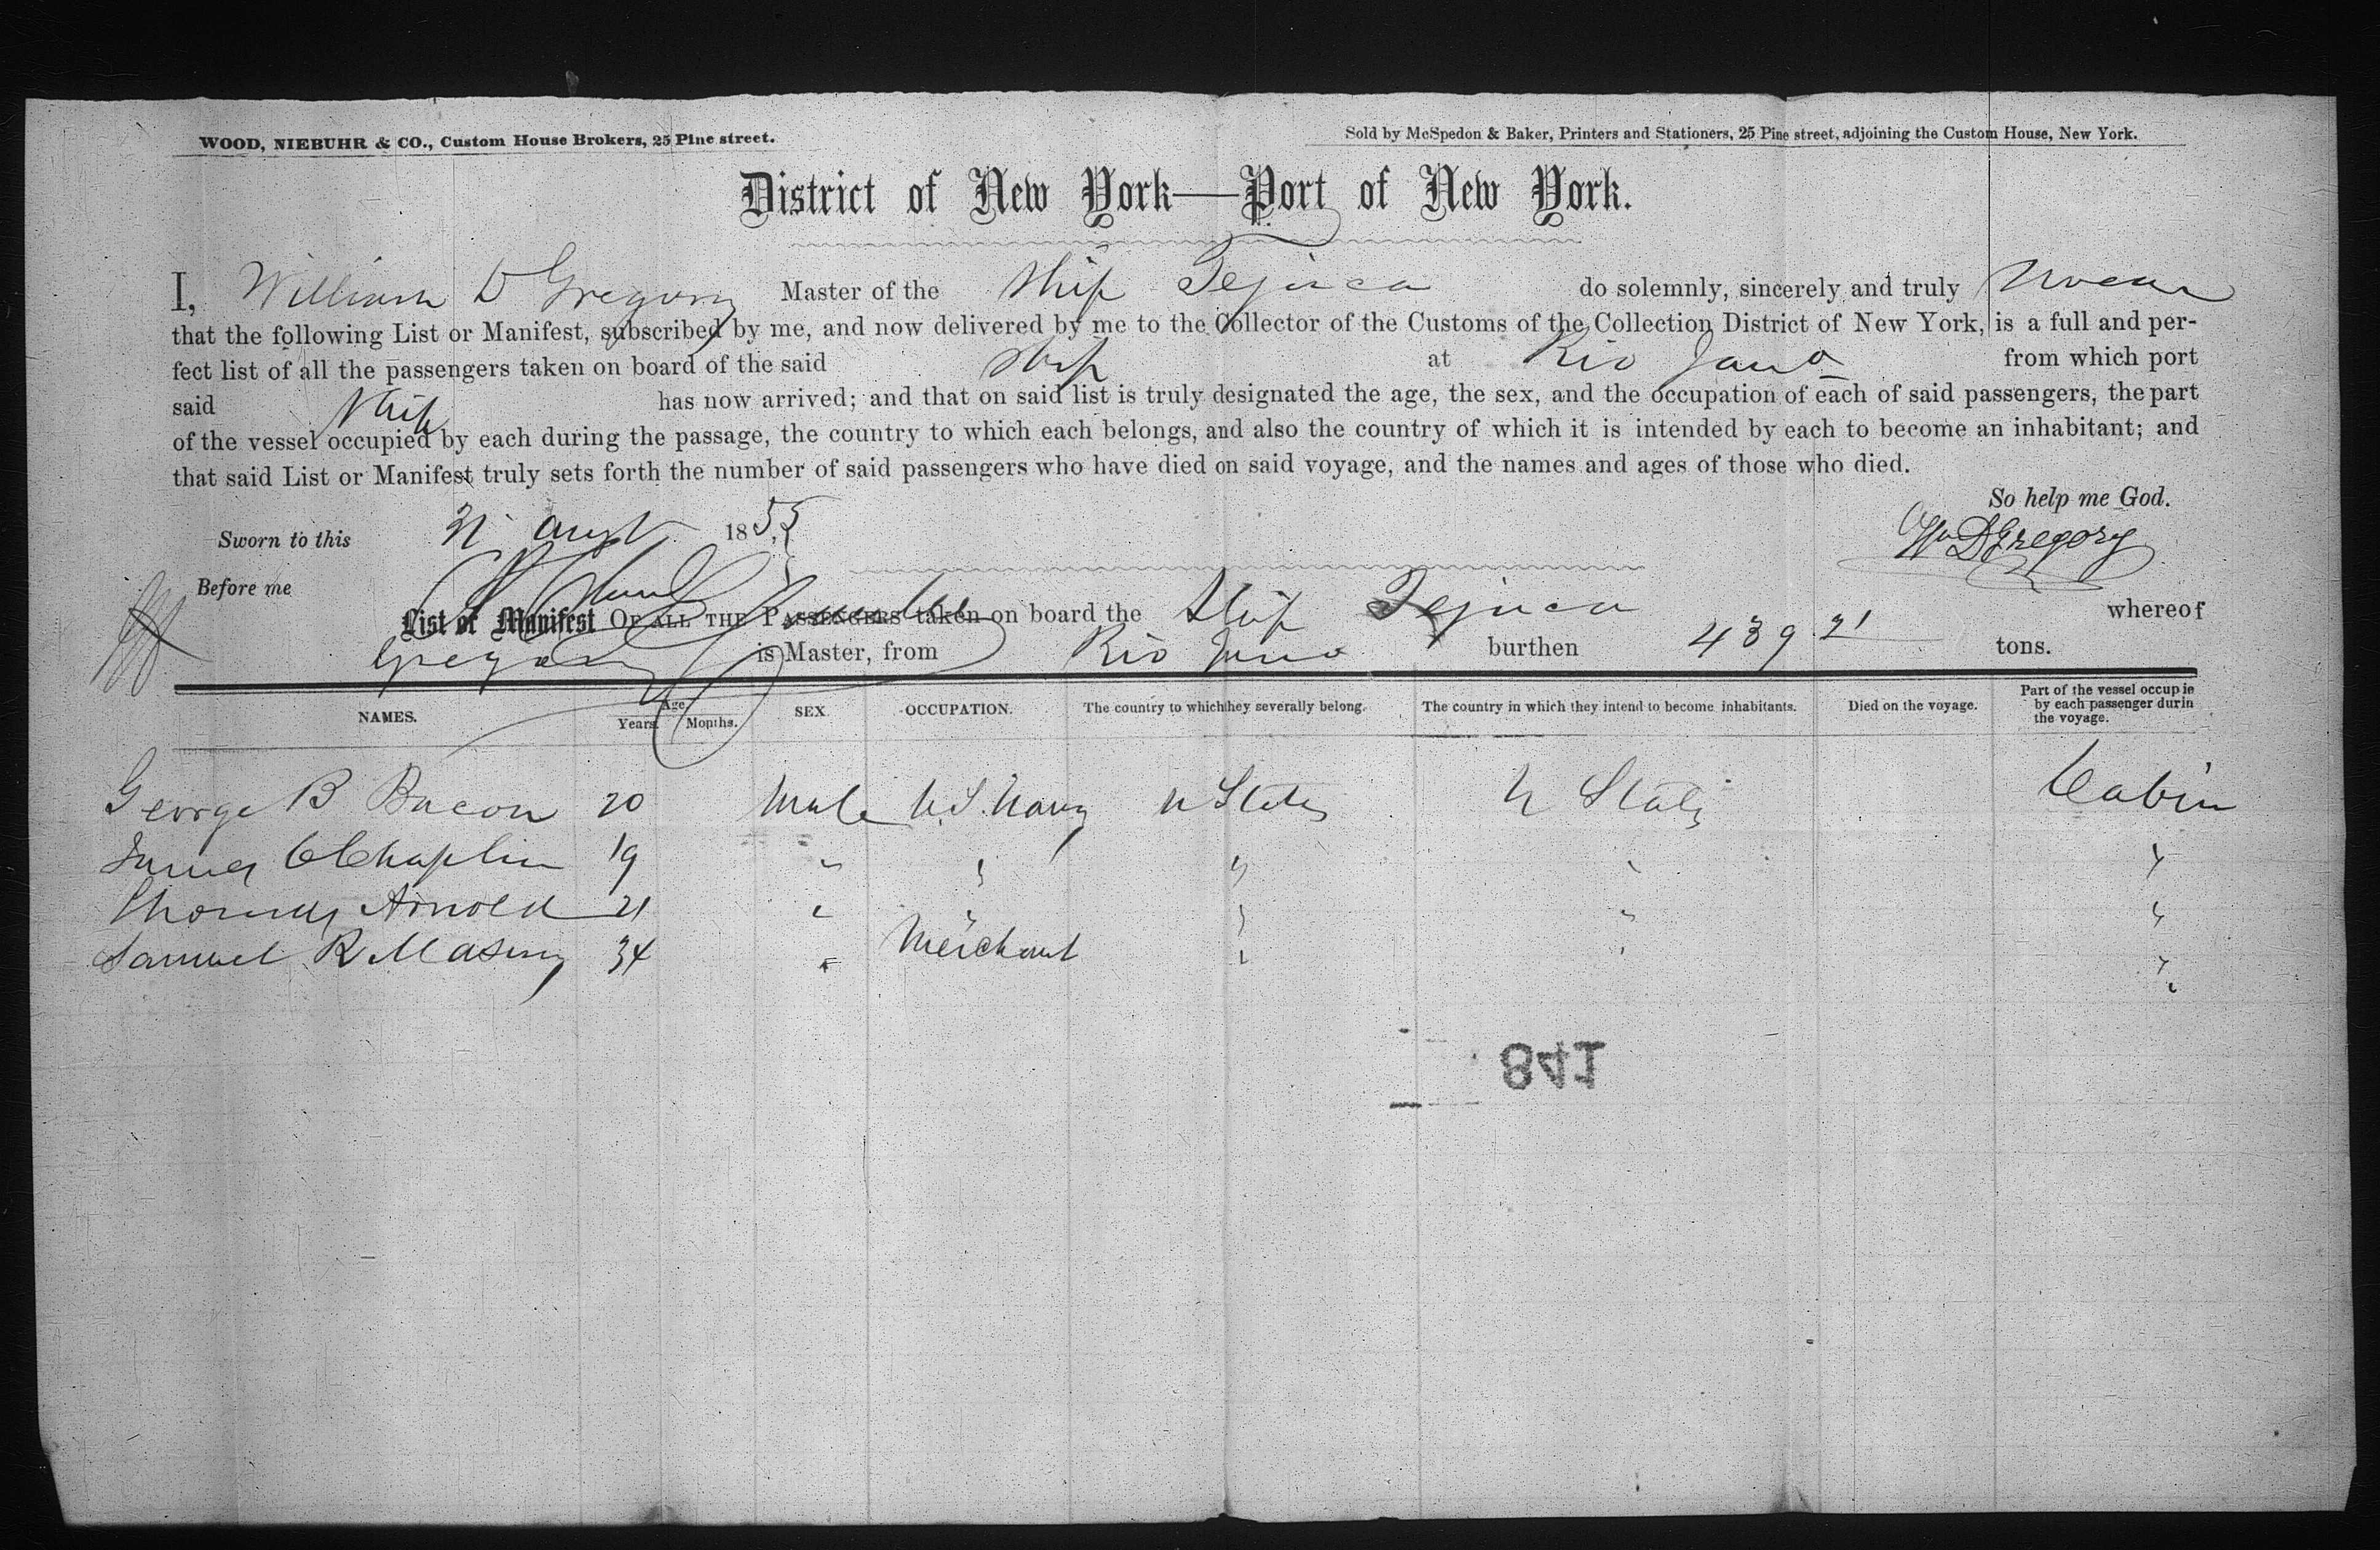 WOOD, NIEBUHR & CO., Custom House Brokers, 25 Pine street.
Sold by McSpedon & Baker, Printers and Stationers, 25 Pine street, adjoining the Custom House, New York.
District of New York—Port of New York.
I, William D Gregory Master of the Ship Tejuca do solemnly, sincerely and truly swear
that the following List or Manifest, subscribed by me, and now delivered by me to the Collector of the Customs of the Collection District of New York, is a full and per-
fect list of all the passengers taken on board of the said Ship at Rio Jano from which port
said Ship has now arrived; and that on said list is truly designated the age, the sex, and the occupation of each of said passengers, the part
of the vessel occupied by each during the passage, the country to which each belongs, and also the country of which it is intended by each to become an inhabitant; and
that said List or Manifest truly sets forth the number of said passengers who have died on said voyage, and the names and ages of those who died.
So help me God.
Sworn to this 21 Augt 1855
Wm D Gregory
Before me
List or Manifest OF ALL THE PASSENGERS taken on board the Ship Tejuca whereof
Gregory is Master, from Rio Jano burthen 439 21 tons.
NAMES. Age Years. Months. SEX OCCUPATION. The country to which they severally belong. The country in which they intend to become inhabitants. Died on the voyage. Part of the vessel occupie by each passenger durin the voyage.
George B Bacon 20 Male U.S. Navy U States U States Cabin
James C Chaplin 19 " " " " "
Thomas Arnold 21 " " " " "
Samuel R Masury 34 " Merchant " " "
841